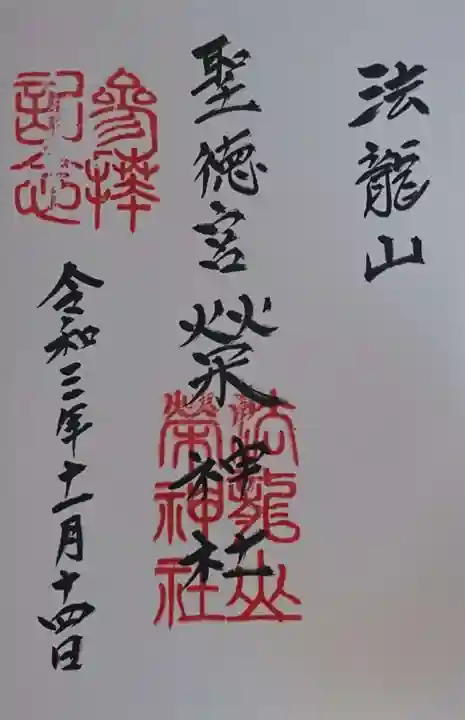 法龍山
聖徳宮榮神社
法龍山
榮神社
参拝
記念
令和三年十一月十四日